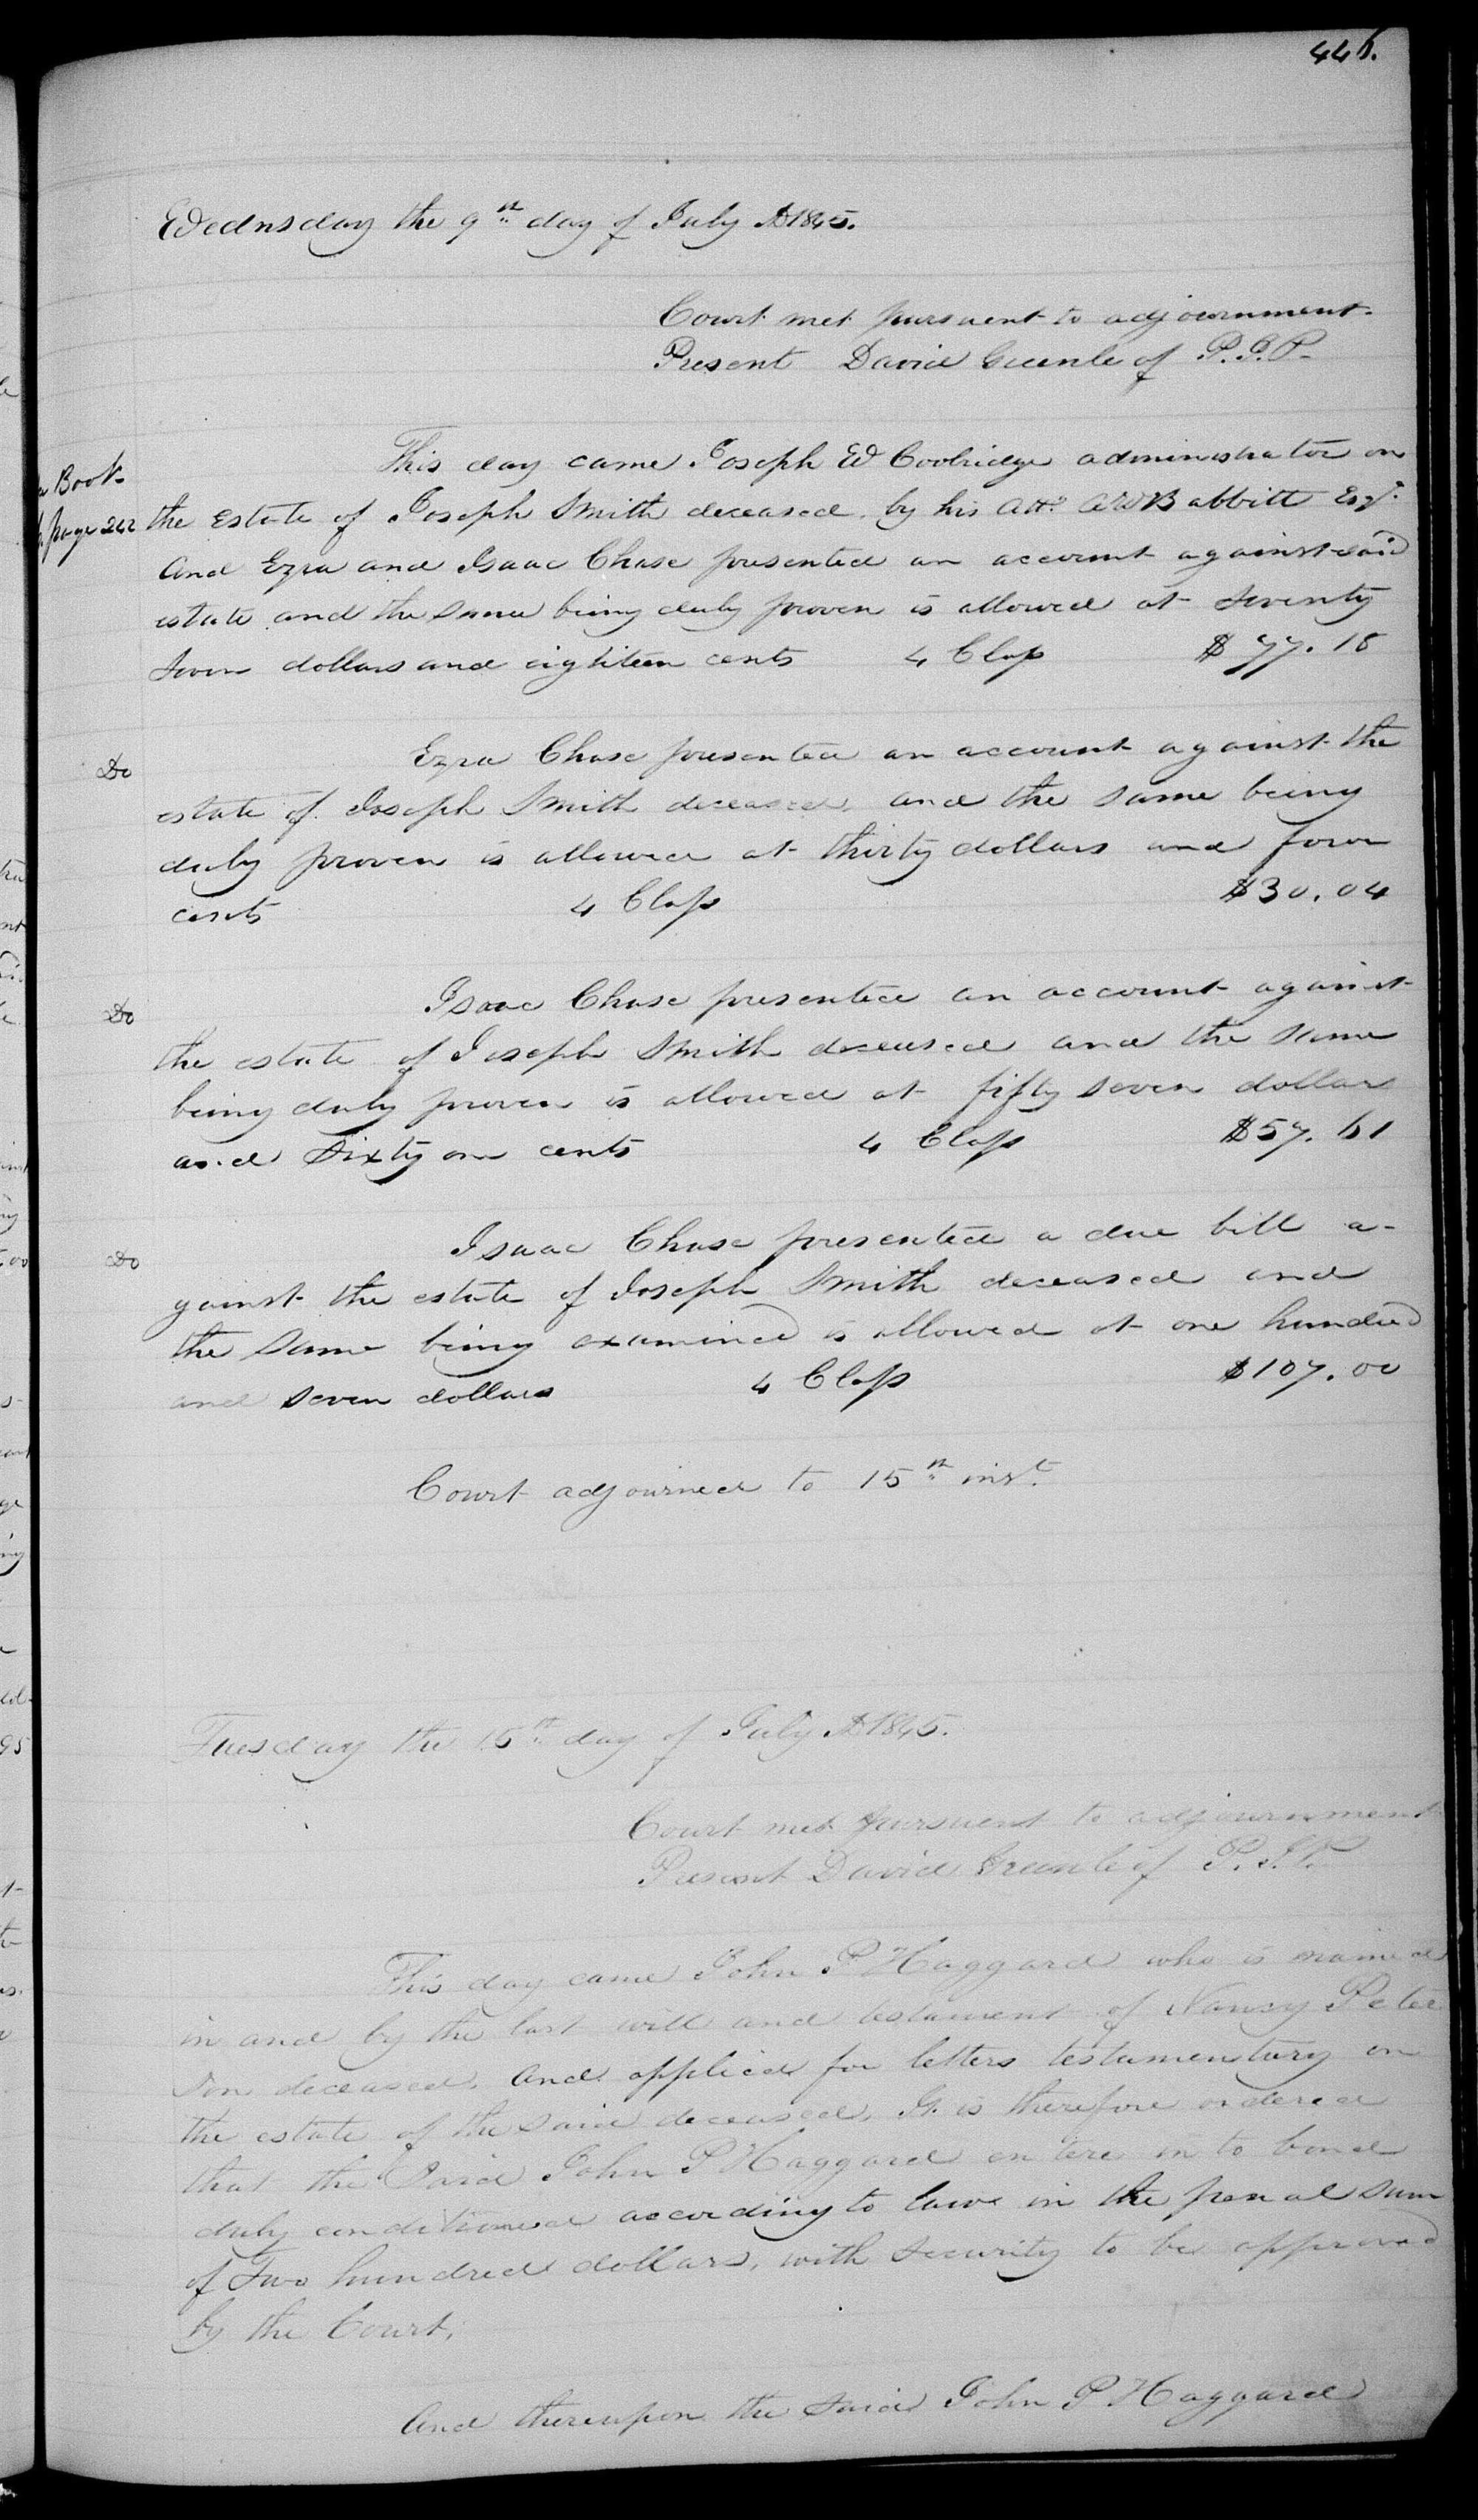 446.
Wednsday the 9th day of July AD 1845.
Court met pursuent to adjournment
Present David Greenleof P.J.P.
This day came Joseph W Coolridge administrator on
Book
page 242
the Estate of Joseph Smith deceased by his Atto. A W Babbitt Esqr.
And Ezra and Isaac Chase presented an account against said
estate and the same being duly proven is allowed at Seventy
Seven dollars and eighteen cents 4 Class $77.18
Do
Ezra Chase presented an account against the
estate of Joseph Smith deceased, and the same being
duly proven is allowed at thirty dollars and four
cents 4 Class $30.04
Do
Isaac Chase presented an account against
the estate of Joseph Smith deceased and the same
being duly proven is allowed at fifty seven dollars
and Sixty one cents 4 Class $57.61
Do
Isaac Chase presented a due bill a-
gainst the estate of Joseph Smith deceased and
the same being examined is allowed at one hundred
and seven dollars 4 Class $107.00
Court adjourned to 15th inst.
Tuesday the 15th day of July AD 1845.
Court met pursuent to adjournment
Present David Greenleof P.J.P.
This day came John P Haggard who is named
in and by the last will and testament of Nancy Peter
son deceased, and applied for letters testamentary on
the estate of the said deceased. It is therefore ordered
that the Said John P Haggard enters in to bond
duly conditioned according to law in the penal sum
of Two hundred dollars, with security to be approved
by the Court,
And thereupon the said John P Haggard